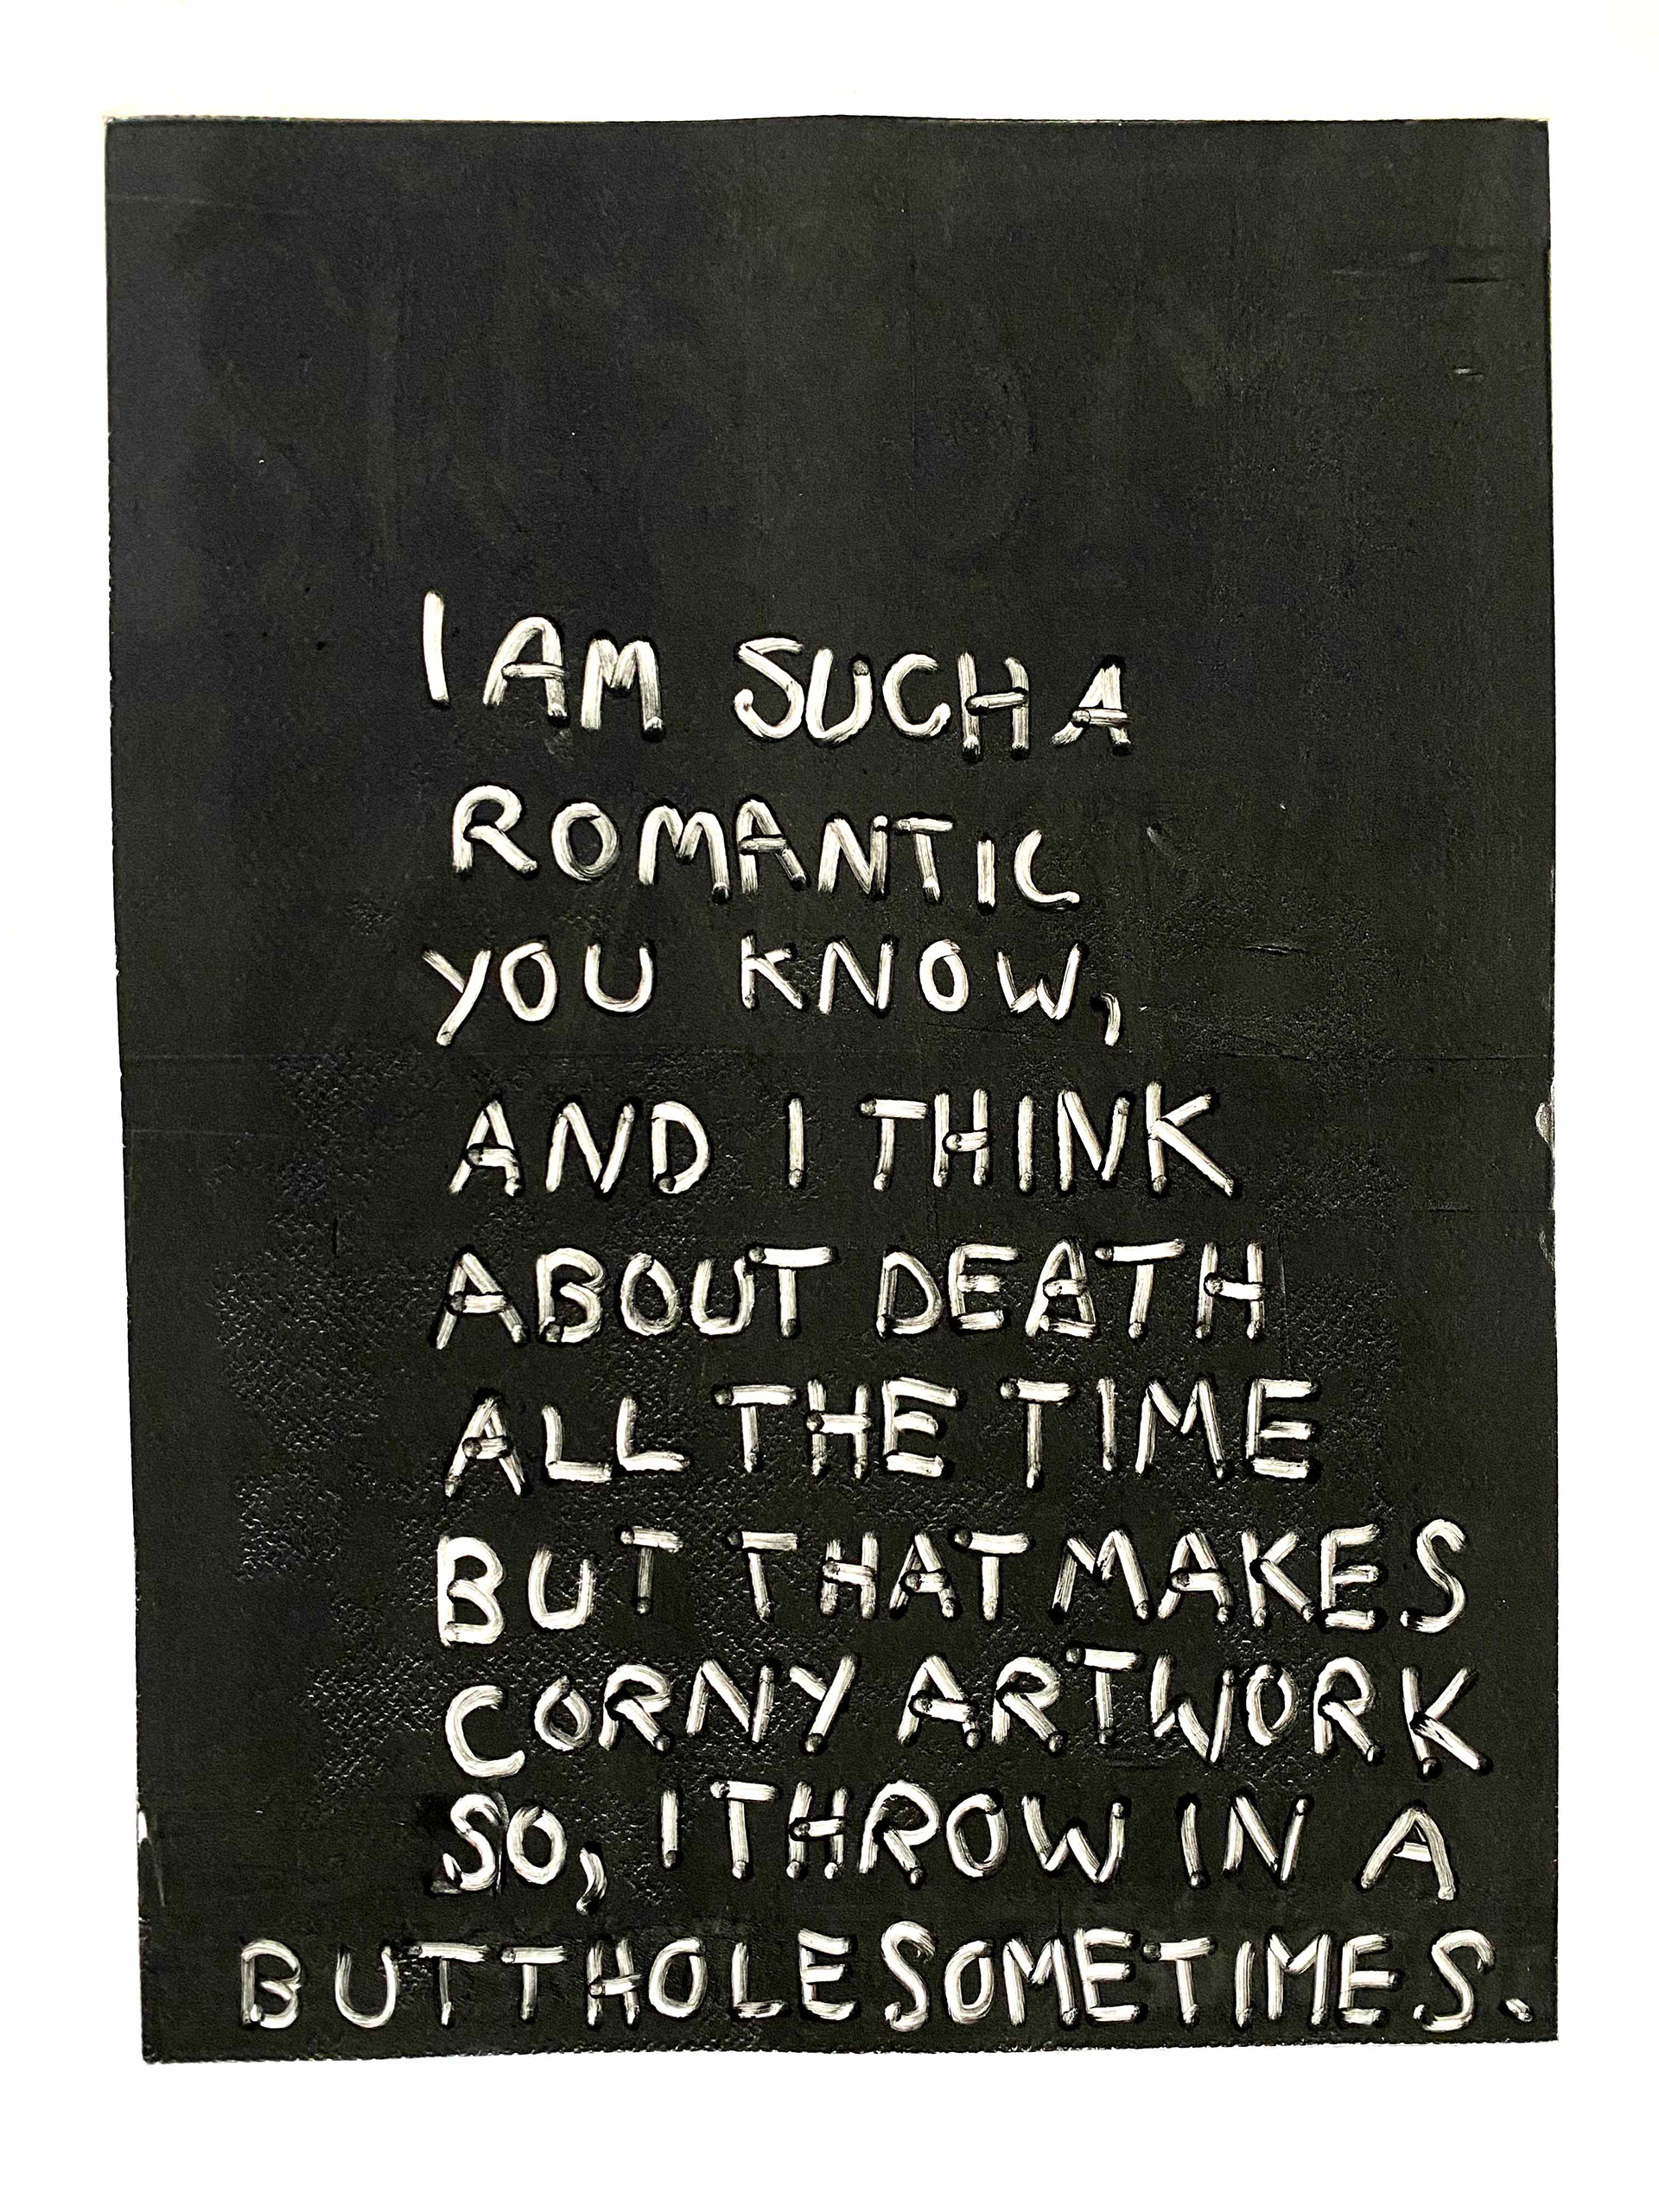 I AM SUCH A
ROMANTIC
YOU KNOW,
AND I THINK
ABOUT DEATH
ALL THE TIME
BUT THAT MAKES
CORNY ARTWORK
SO, I THROW IN A
BUTTHOLE SOMETIMES.